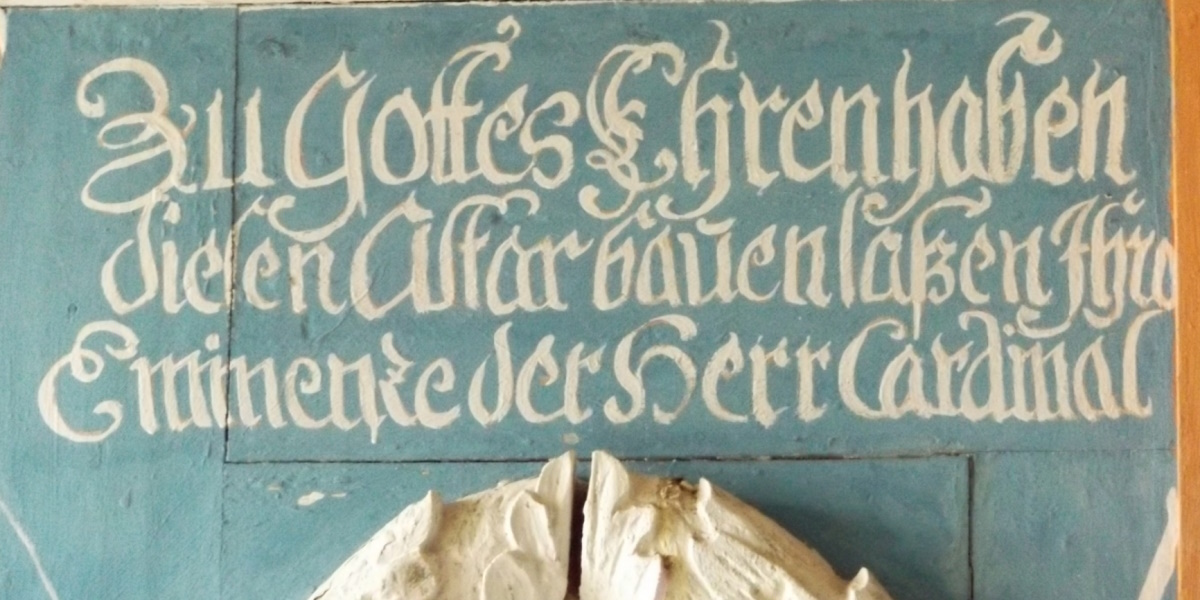 Zu Gottes Ehren haben
diesen Altar bauen laßen Ihro
Eminenze der Herr Cardinal